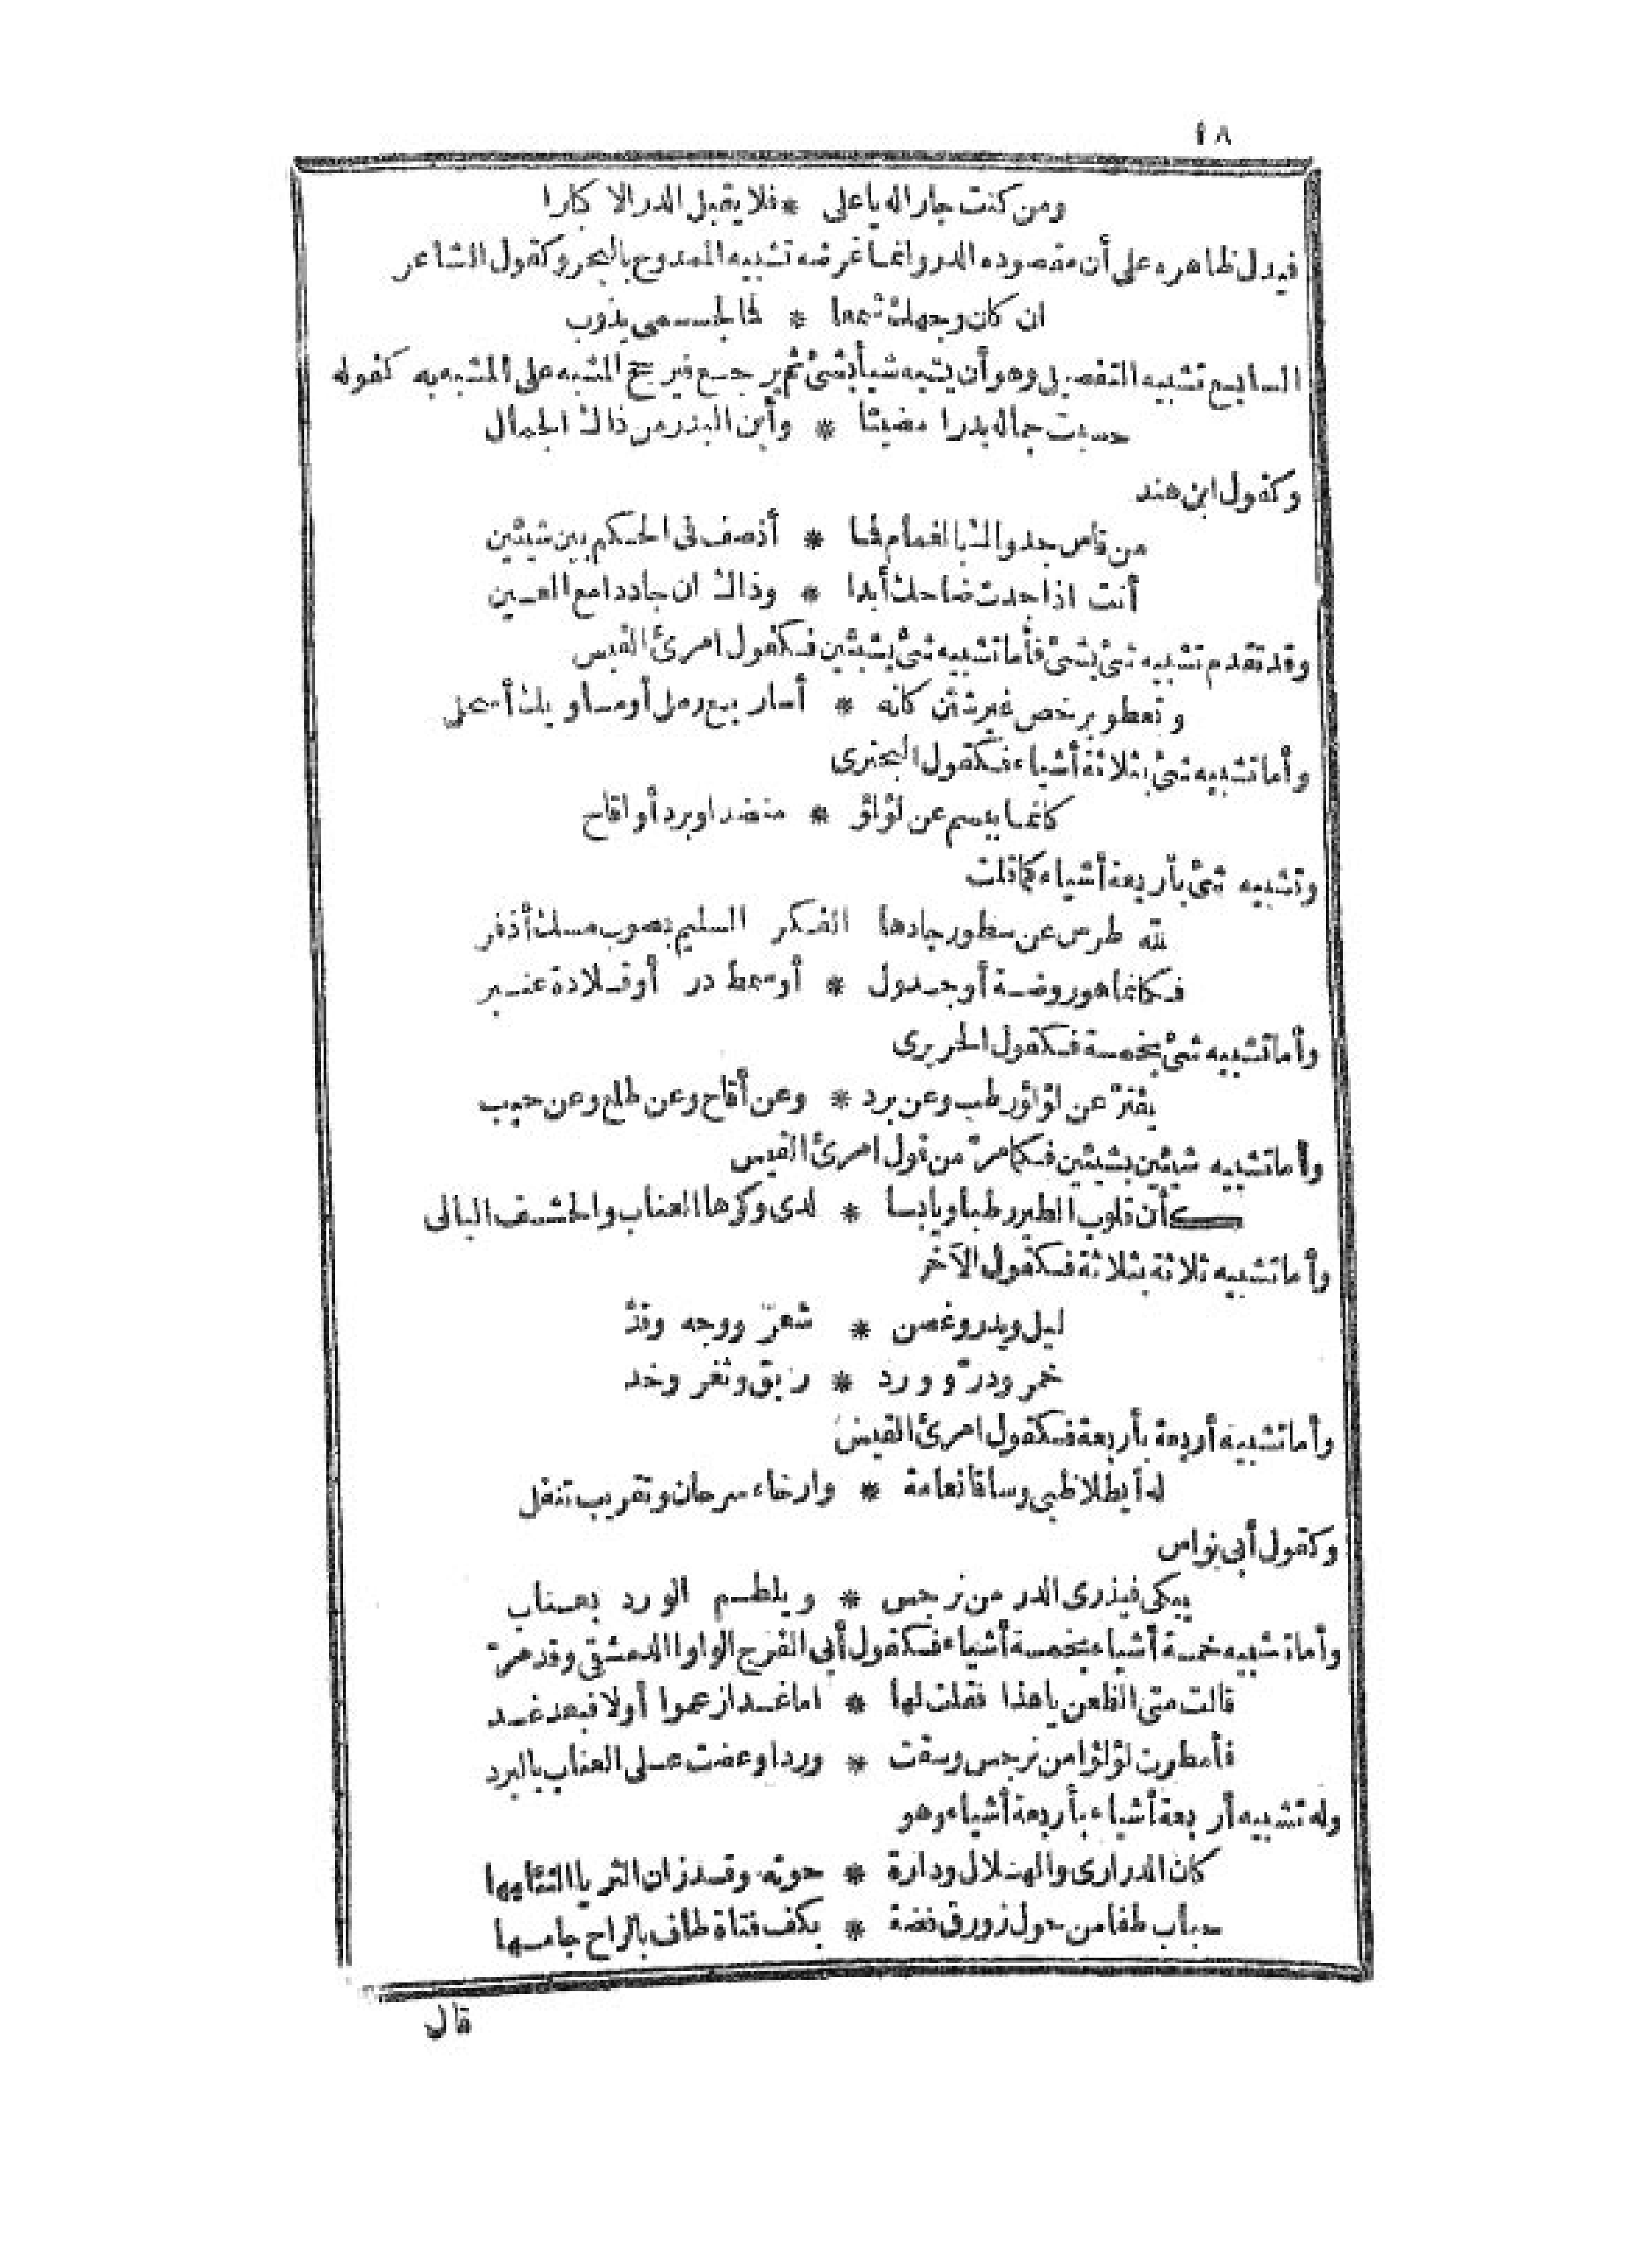 ١٨
ومن كنت جارا له يا على * فلا يقبل الدر الا كبارا
فيدل ظاهره على أن مقصوده الدر وانما غرضه تشبيه الممدوح بالبحر وكقول الشاعر
ان كان وجهك شمعا * فما لجسمى يذوب
السابع تشبيه التفضيل وهو أن يشبه شيأ بشئ ثم يرجع فيرجح المشبه على المشبه به كقوله
حسبت جماله بدرا مضيئا * وأين البدر من ذاك الجمال
وكقول ابن هند
من قاس جدواك بالغمام فما * أنصف فى الحكم بين شيئين
أنت اذا جدت ضاحك أبدا * وذاك ان جاد دامع العين
وقد تقدم تشبيه شئ بشئ فأما تشبيه شئ بشيئين فكقول امرئ القيس
وتعطو برخص غير شثن كانه * أساريع رمل أو مساويك أسحل
وأما تشبيه شئ بثلاثة أشياء فكقول البحترى
كانما يبسم عن لؤلؤ * منضد او برد أو اقاح
وتشبيه شئ بأربعة أشياء كما قلت
لله طرس عن سطور جادها الفكر السليم بصوب مسك أذفر
فكانما هو روضة أو جدول * أو سمط در أو قلادة عنبر
وأما تشبيه شئ بخمسة فكقول الحريرى
يفتر عن لؤلؤ رطب وعن برد * وعن أقاح وعن طلع وعن حبب
وأما تشبيه شيئين بشيئين فكما مر من قول امرئ القيس
كأن قلوب الطير رطبا ويابسا * لدى وكرها العناب والحشف البالى
وأما تشبيه ثلاثة بثلاثة فكقول الآخر
ليل وبدر وغصن * شعر ووجه وقد
خمر ودر وورد * ريق وثغر وخد
وأما تشبيه أربعة بأربعة فكقول امرئ القيس
له أيطلا ظبى وساقا نعامة * وارخاء سرحان وتقريب تتفل
وكقول أبى نواس
يبكى فيذرى الدر من نرجس * ويلطم الورد بعناب
وأما تشبيه خمسة أشياء بخمسة أشياء فكقول أبى الفرج الواوا الدمشقى وقد مر
قالت متى الظعن يا هذا فقلت لها * اما غدا زعموا أولا فبعد غد
فأمطرت لؤلؤا من نرجس وسقت * وردا وعضت على العناب بالبرد
وله تشبيه أربعة أشياء بأربعة أشياء وهو
كان الدرارى والهلال ودارة * حوته وقد زان الثريا التئامها
حباب طفا من حول زورق فضة * بكف فتاة طاف بالراح جامها
قال